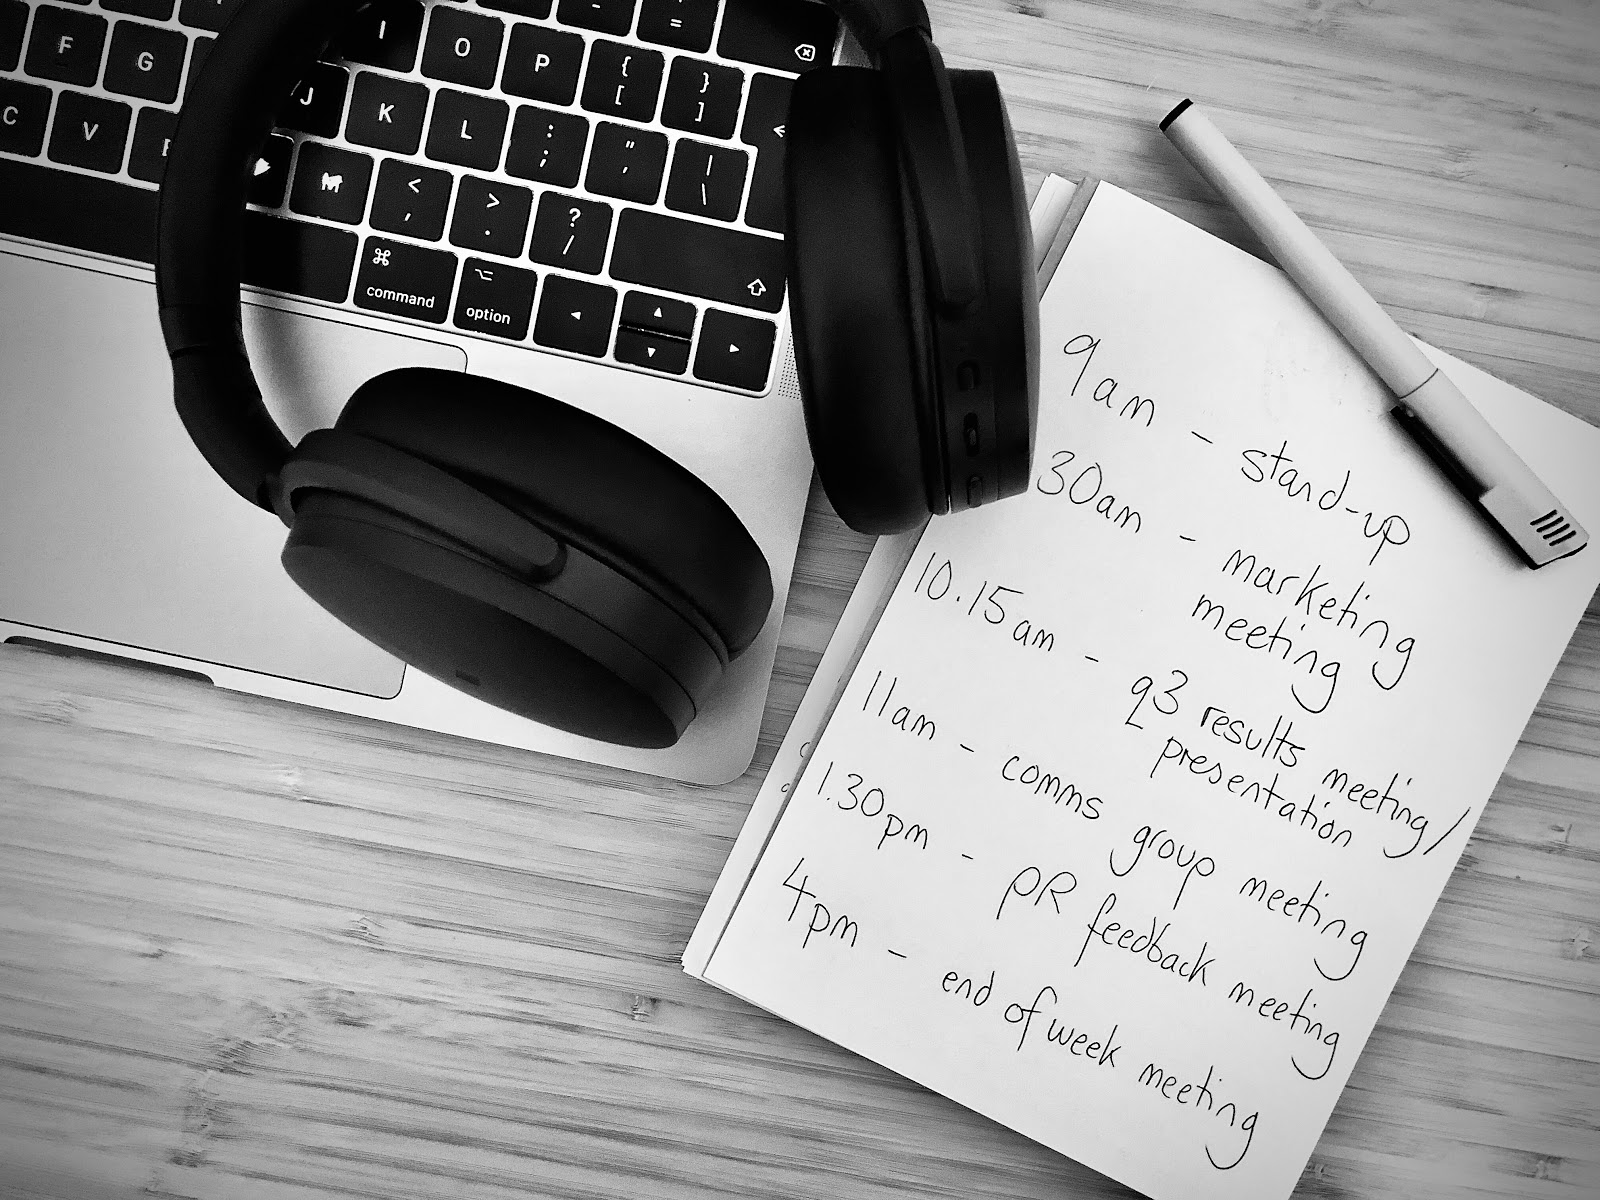 - =
I O P { [ } ]
F G J K L : ; " , | \
C V M < , > . ? /
⌘ command
⌥ option
9am - stand-up
30am - marketing
meeting
10.15am - q3 results meeting/
presentation
11am - comms group meeting
1.30pm - PR feedback meeting
4pm - end of week meeting